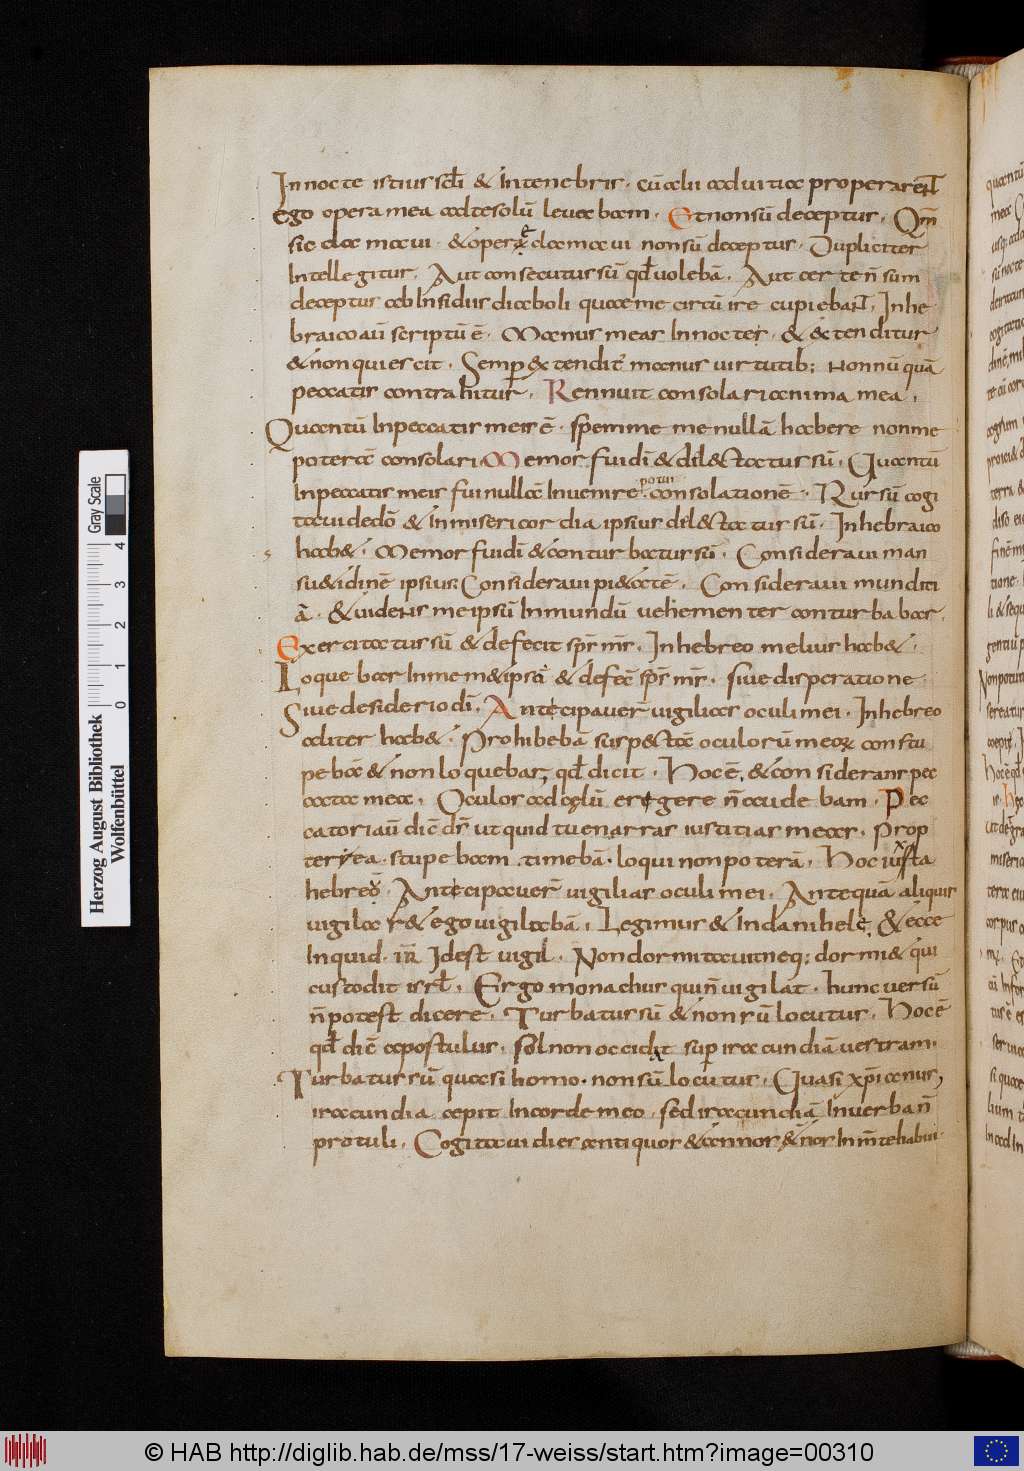 In nocte istius scłi & in tenebris · cū alii ad uitia properarent
ego opera mea ad te solū leuabam · Et non sū deceptus · Qm̄
sic clamaui · & opere clamaui non sū deceptus · Dupliciter
intellegitur · Aut consecutus sū qđ uolebā · Aut certe n̄ sum
deceptus ab insidiis diaboli quae me circūire cupiebant · In he
braico aū scriptū ē · Manus meas in noctes · & extenditur
& non quiescit · Semp extendit᷑ manus uirtutib; nonnūquā
peccatis contrahitur · Rennuit consolari anima mea ·
Quantū in peccatis meis ē · spem me nullā habere non me
poterat consolari Memor fui dī & dilectatus sū · Quantū
in peccatis meis fui nullā inuenire potui consolationē · Rursū cogi
taui de dō & in misericordia ipsius dilectatus sū · In hebraico
hab& · Memor fui dī & conturbatus sū · Consideraui man
su&udinē ipsius Consideraui pi&atē · Consideraui munditi
ā · & uidens me ipsū inmundū uehementer conturbabar ·
Exercitatus sū & defecit sp̄s m̄s · In hebreo melius hab& ·
Loquebar in mem&ipsū & defeē sp̄s m̄s · siue disperatione
Siue desiderio dī · Antecipauer̄ uigilias oculi mei · In hebreo
aliter hab& · Prohibebā suspectū oculorū meoꝝ constu
pebā & non loquebar, qđ dicit · Hoc ē, & considerans pec
cata mea · Oculos ad cęlū eregere n̄ audebam · Pec
catori aū dic̄ dr̄ ut quid tu enarras iustitias meas · Prop
terea · stupebam timebā · loqui non poterā · Hoc iuxta
hebreū · Antecipauer̄ uigilias oculi mei · Antequā aliquis
uigilar& ego uigilabā · Legimus & in danihele · & ecce
inquid · ir̄ Id est uigil · Non dormitauit neq; dormi& qui
custodit isrł · Ergo monachus qui n̄ uigilat · hunc uersū
n̄ potest dicere · Turbatus sū & non sū locutus · Hoc ē
qđ dic̄ apostulus · sol non occidat sup iracundiā uestram ·
Turbatus sū quasi homo · non sū locutus · Quasi xp̄ianus,
iracundia cepit in corde meo · sed iracundiā in uerba n̄
protuli · Cogitaui dies antiquos & annos &n̄os in m̄te habui ·
Herzog August Bibliothek
Wolfenbüttel
Gray Scale
0 1 2 3 4
© HAB http://diglib.hab.de/mss/17-weiss/start.htm?image=00310